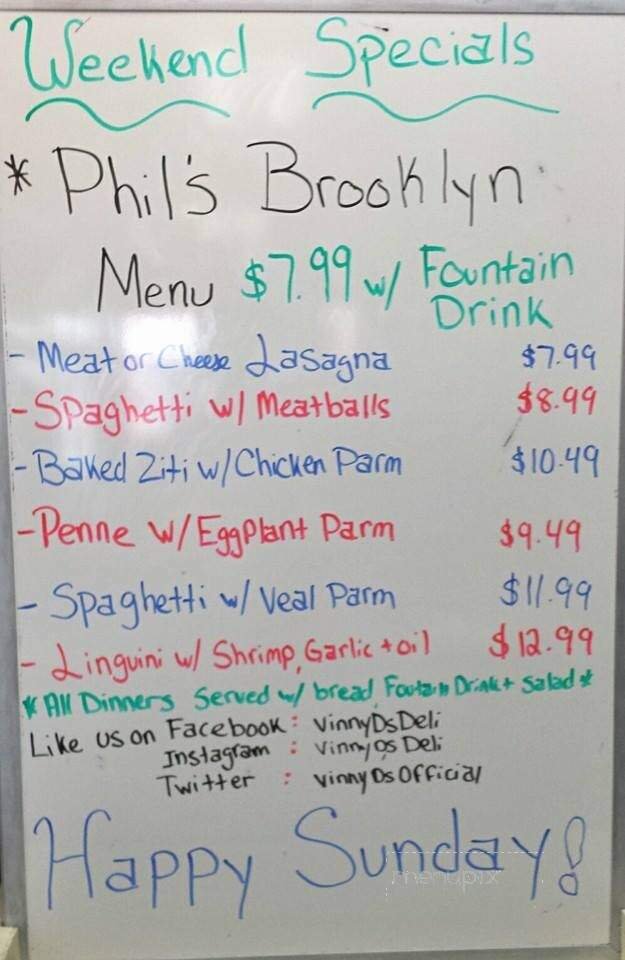 Weekend Specials
* Phil's Brooklyn
Menu $7.99 w/ Fountain Drink
- Meat or Cheese Lasagna $7.99
- Spaghetti w/ Meatballs $8.99
- Baked Ziti w/ Chicken Parm $10.49
- Penne w/ Eggplant Parm $9.49
- Spaghetti w/ Veal Parm $11.99
- Linguini w/ Shrimp, Garlic + oil $12.99
* All Dinners Served w/ bread, Foutain Drink + Salad *
Like us on Facebook: VinnyDsDeli
Instagram : VinnyDs Deli
Twitter : VinnyDsOfficial
Happy Sunday!
menupix